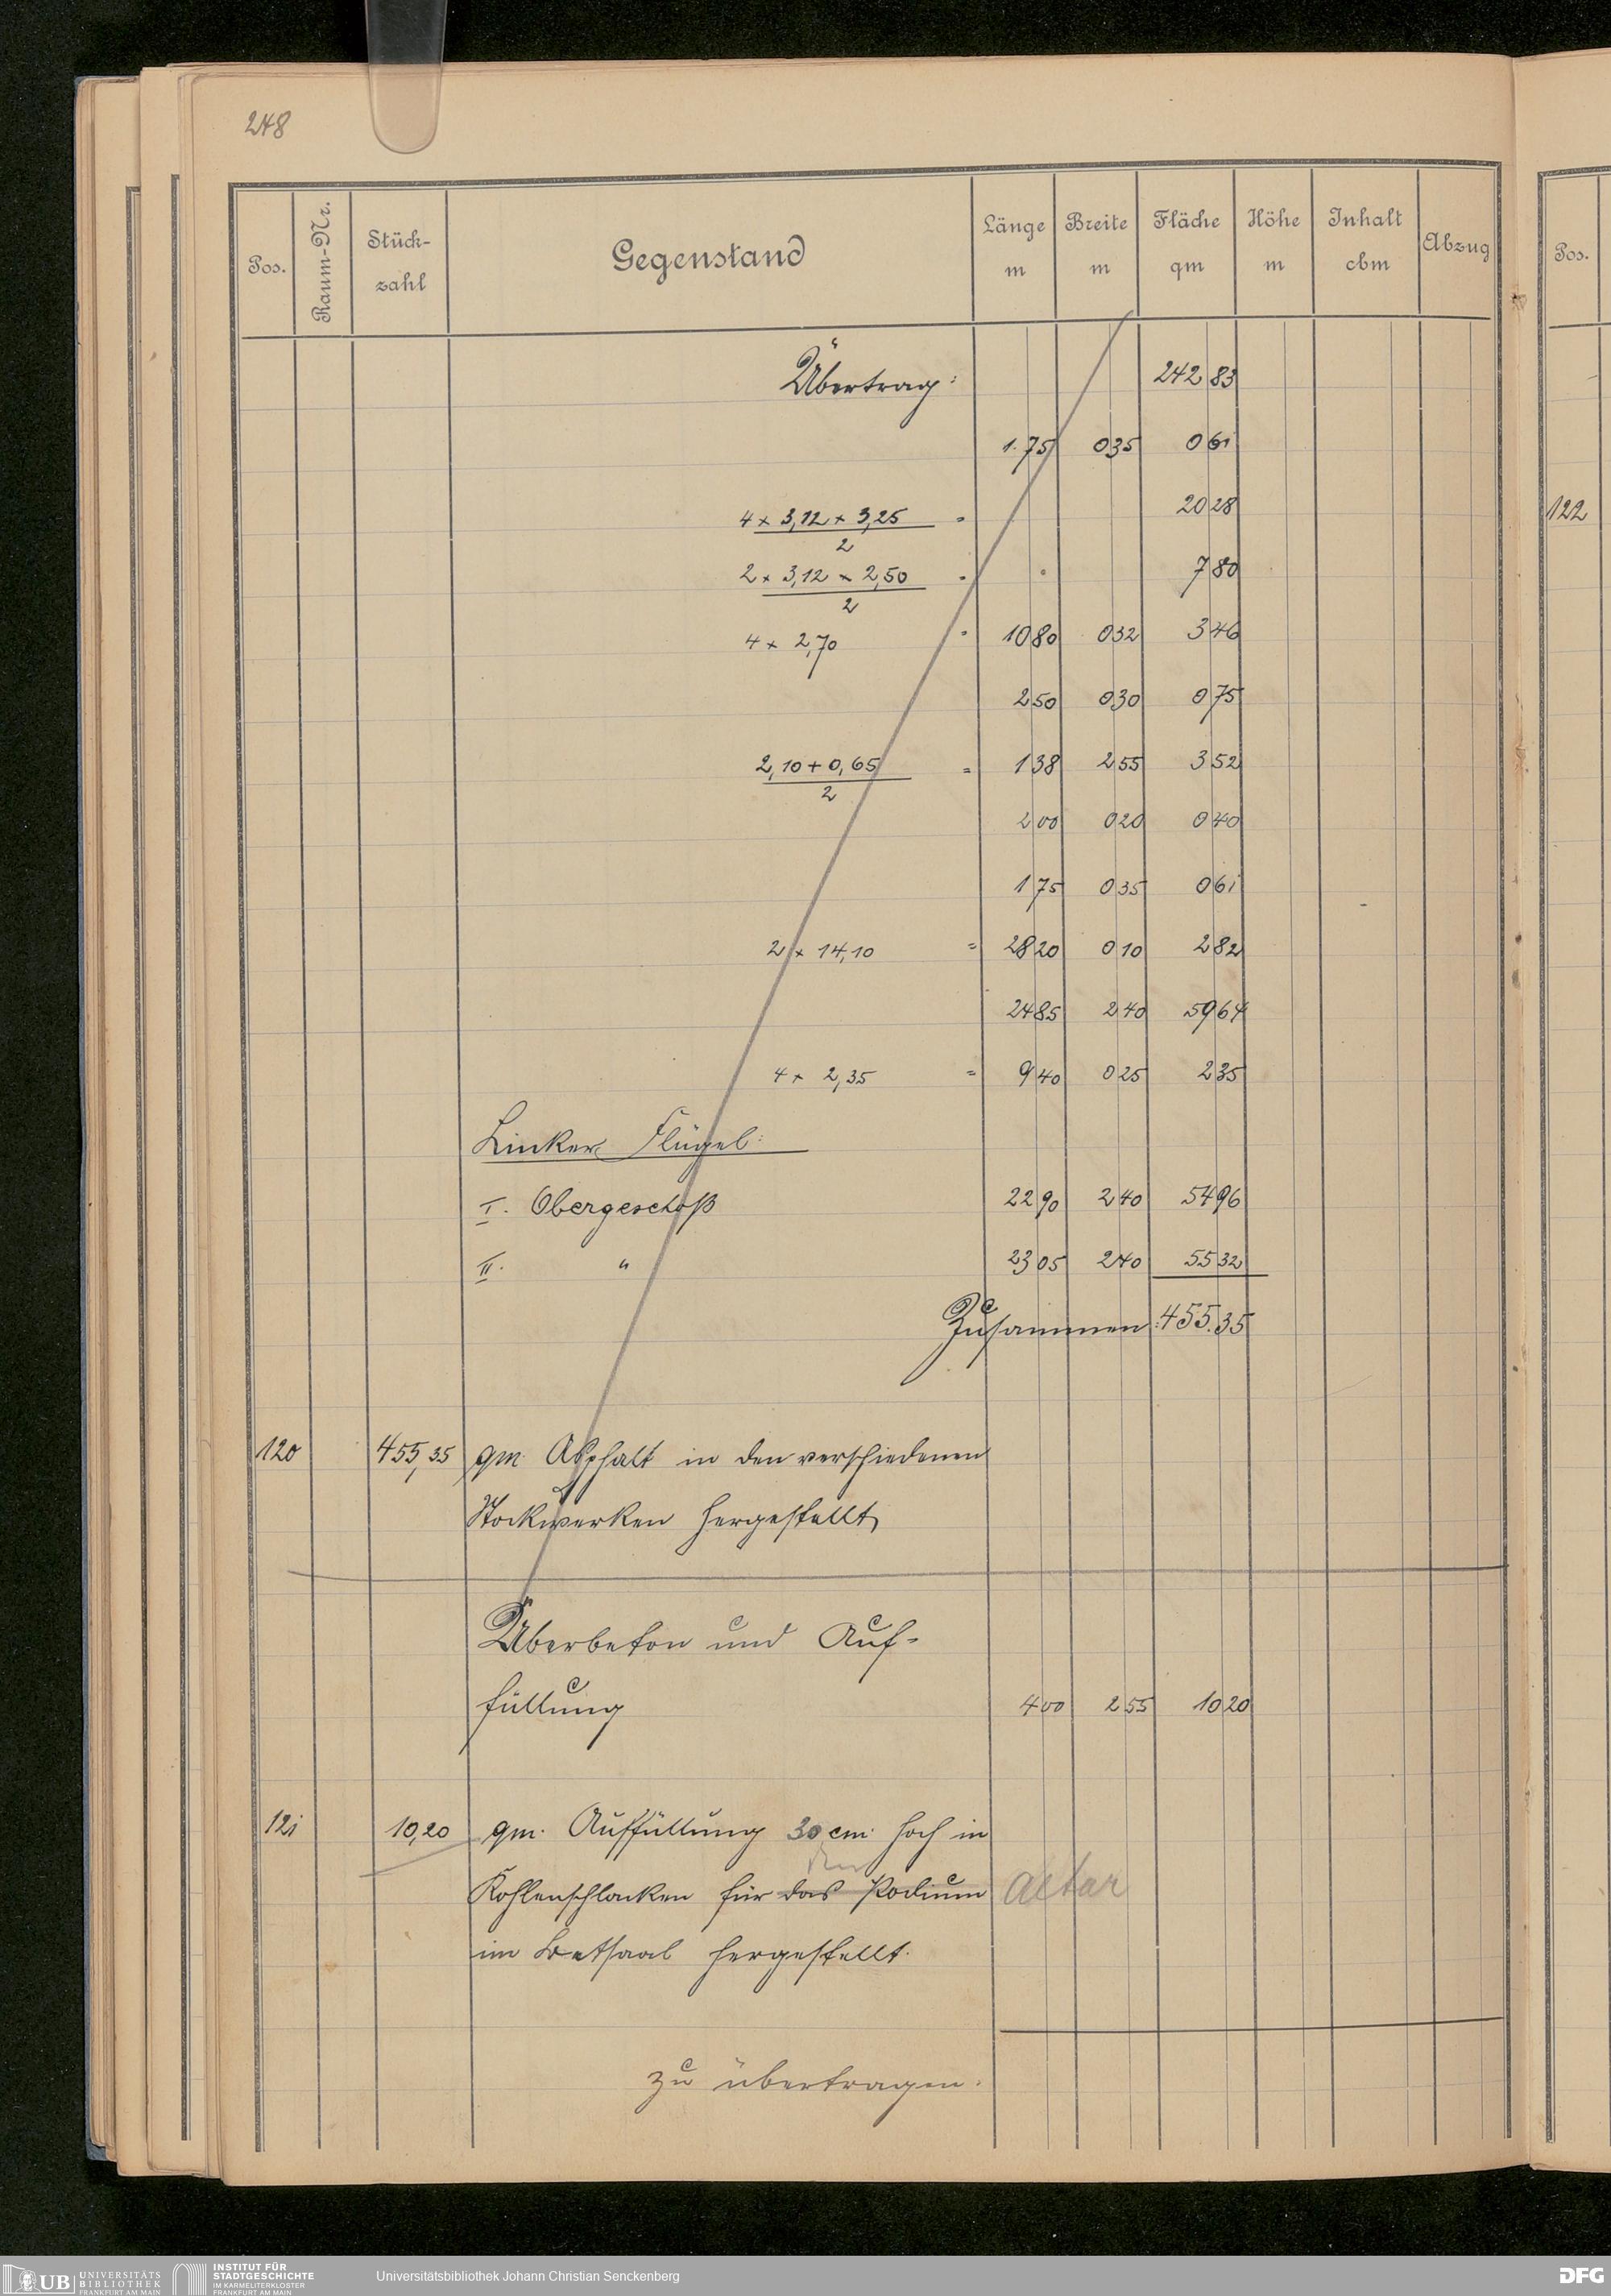 248
Pos. Raum-Nr. Stück-zahl Gegenstand Länge m Breite m Fläche qm Höhe m Inhalt cbm Abzug Pos.
Übertrag: 242 83
1.75 0 35 0 61
4 × 3,12 × 3,25 / 2 = 20 28
122
2 × 3,12 × 2,50 / 2 = 7 80
4 × 2,70 = 10 80 0 32 3 46
2 50 0 30 0 75
2,10 + 0,65 / 2 = 1 38 2 55 3 52
2 00 0 20 0 40
1 75 0 35 0 61
2 × 14,10 = 28 20 0 10 2 82
24 85 2 40 59 64
4 × 2,35 = 9 40 0 25 2 35
Linker Flügel:
I. Obergeschoß 22 90 2 40 54 96
II. " 23 05 2 40 55 32
Zusammen: 455.35
120 455,35 qm Asphalt in den verschiedenen
Stockwerken hergestellt
Überbeton und Auf-
füllung 4 00 2 55 10 20
121 10,20 qm. Auffüllung 30 cm hoch in
den
Kohlenschlacken für das Podium Altar
im Betsaal hergestellt.
zu übertragen.
UB UNIVERSITÄTS
BIBLIOTHEK
FRANKFURT AM MAIN
INSTITUT FÜR
STADTGESCHICHTE
IM KARMELITERKLOSTER
FRANKFURT AM MAIN
Universitätsbibliothek Johann Christian Senckenberg
DFG